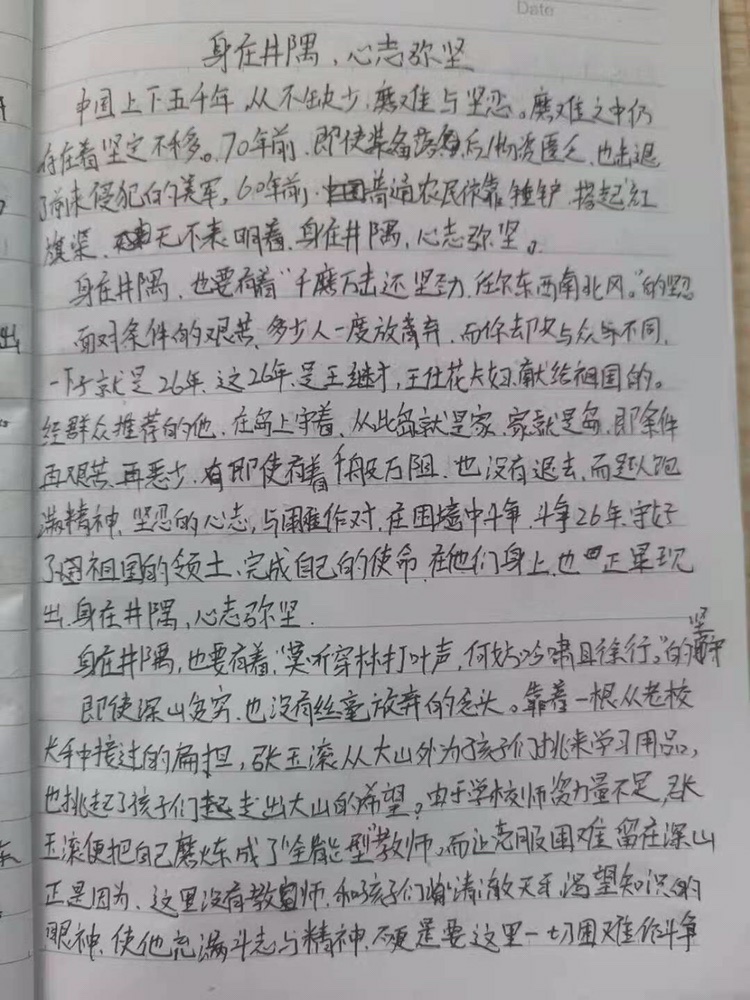 Date
身在井隅、心志弥坚
中国上下五千年,从不缺少,磨难与坚忍。磨难之中仍
存在着坚定不移。70年前,即使装备落后,物资匮乏,也击退
了前来侵犯的美军,60年前,中国普通农民依靠锤铲,搭起"红
旗渠,无不表明着,身在井隅,心志弥坚。
身在井隅,也要有着"千磨万击还坚劲,任尔东西南北风。"的坚忍
面对条件的艰苦,多少人一度放弃,而你却与众不同,
一守就是26年,这26年,是王继才,王仕花夫妇献给祖国的。
经群众推荐的他,在岛上守着,从此岛就是家,家就是岛,即条件
再艰苦,再恶劣,即使有着千般万阻,也没有退去,而是以饱
满精神,坚忍的心志,与困难作对,在困境中斗争,斗争26年,守好
了祖国的领土、完成自己的使命,在他们身上,也正呈现
出,身在井隅,心志弥坚.
身在井隅,也要有着,"莫听穿林打叶声,何妨吟啸且徐行。"的坚守
即使深山贫穷,也没有丝毫放弃的念头。靠着一根从老校
长手中接过的扁担,张玉滚从大山外为孩子们挑来学习用品,
也挑起了孩子们走出大山的希望。由于学校师资力量不足,张
玉滚便把自己磨炼成了"全能型"教师,而让克服困难留在深山
正是因为,这里没有教师,和孩子们清澈天真,渴望知识的
眼神,使他充满斗志与精神,更是要这里一切困难作斗争
出